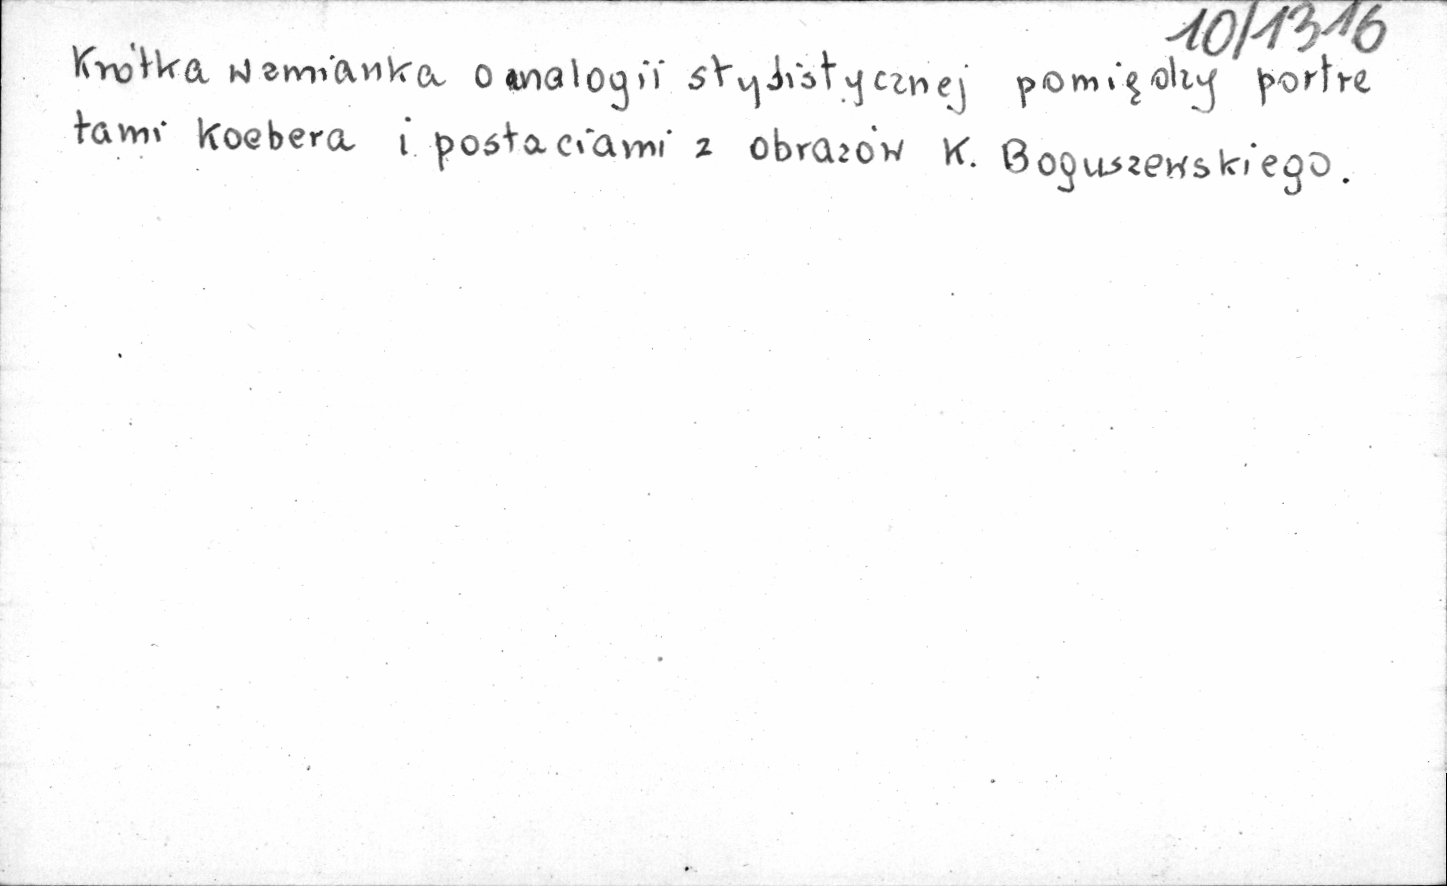 10/1316
Krótka wzmianka o analogii stylistycznej pomiędzy portre
tami Koebera i postaciami z obrazów K. Boguszewskiego.